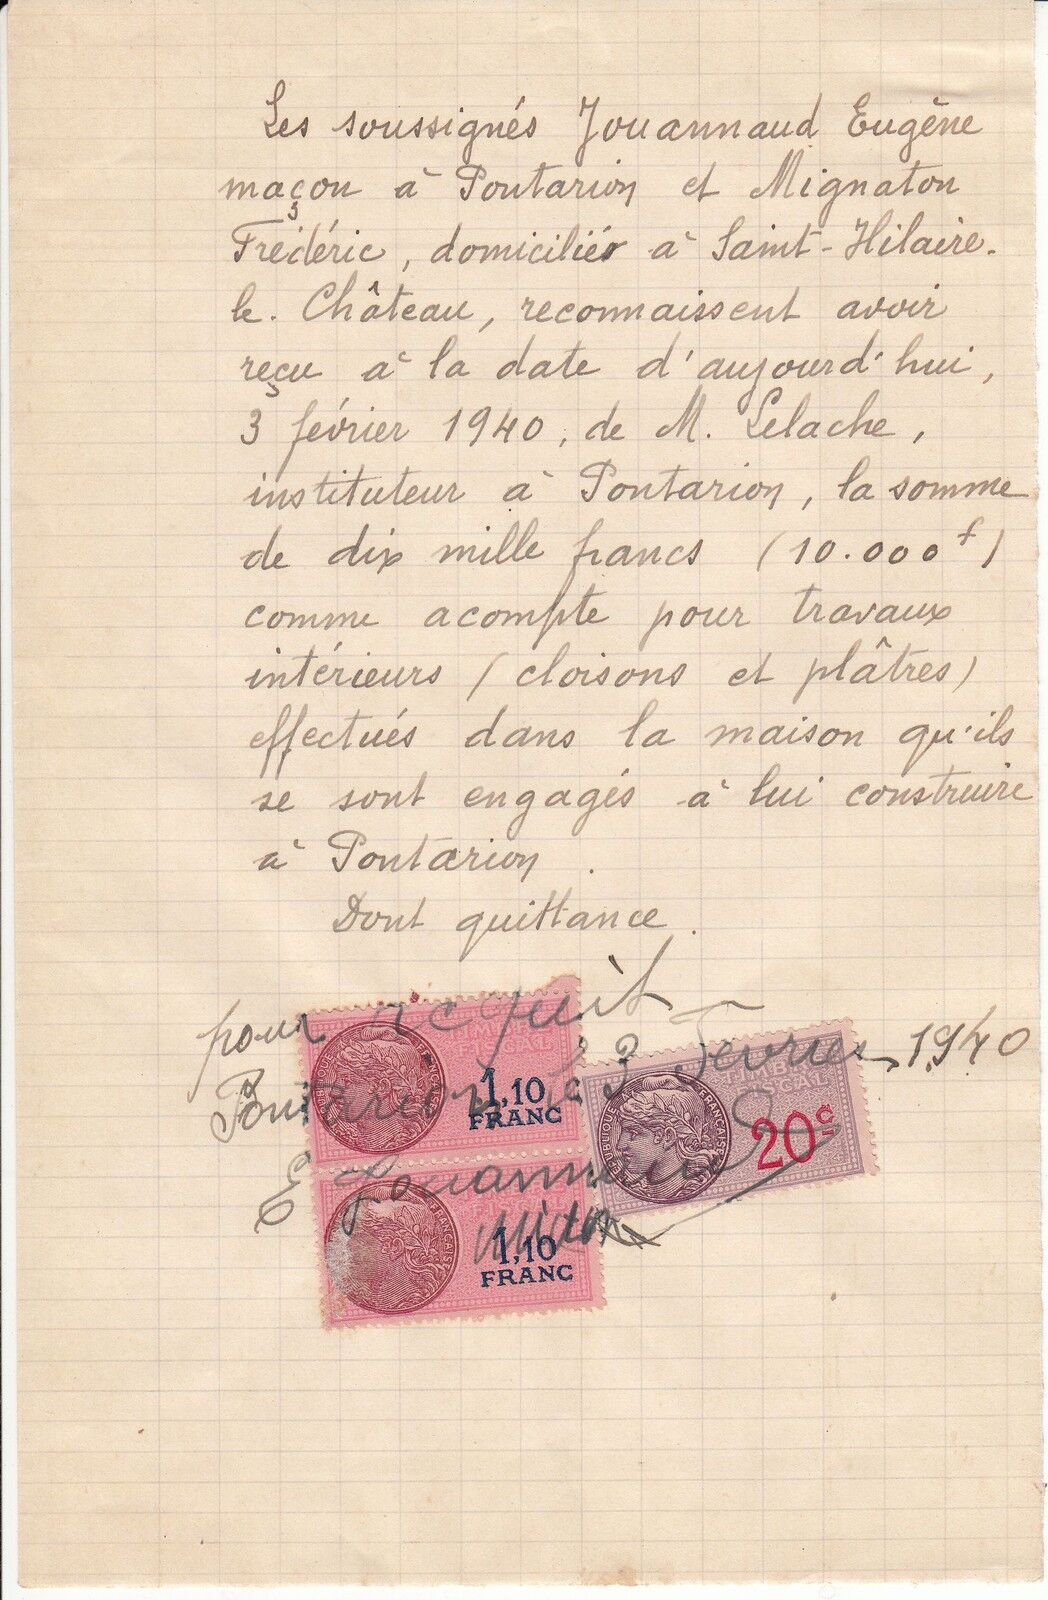 Les soussignés Jouannaud Eugène
maçon à Pontarion et Mignaton
Frédéric, domiciliés à Saint-Hilaire-
le-Château, reconnaissent avoir
reçu à la date d'aujourd'hui,
3 février 1940, de M. Lelache,
instituteur à Pontarion, la somme
de dix mille francs (10.000 f)
comme acompte pour travaux
intérieurs (cloisons et plâtres)
effectués dans la maison qu'ils
se sont engagés à lui construire
à Pontarion.
Dont quittance.
pour acquit
Pontarion le 3 Fevrier 1940
E Jouannaud
TIMBRE FISCAL
1,10
FRANC
RÉPUBLIQUE FRANÇAISE
TIMBRE FISCAL
20c
1,10
FRANC